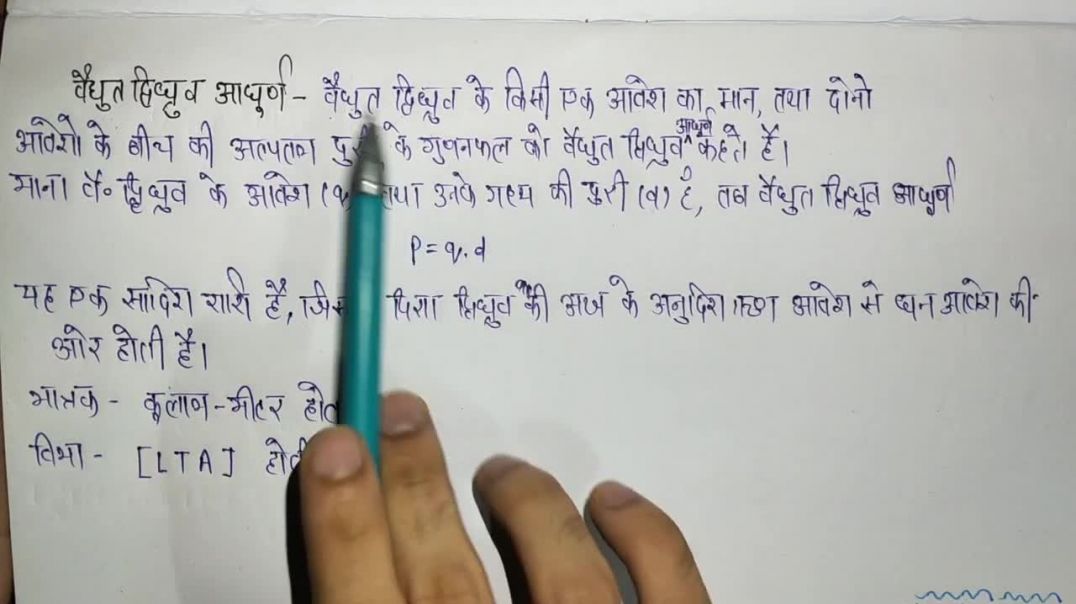 वैधुत द्विध्रुव आघूर्ण - वैधुत द्विध्रुव के किसी एक आवेश का मान, तथा दोनो
आवेशो के बीच की अल्पतम के गुणनफल को वैधुत द्विध्रुव आघूर्ण कहते है।
माना वै० द्विध्रुव के आवेश (q) तथा उनके मध्य की दुरी (d) है, तब वैधुत द्विध्रुव आघूर्ण
P = q.d
यह एक सदिश राशि है, दिशा द्विध्रुव की अक्ष के अनुदिश ऋण आवेश से धन आवेश की
ओर होती है।
मात्रक - कूलाम-मीटर
विमा - [LTA]